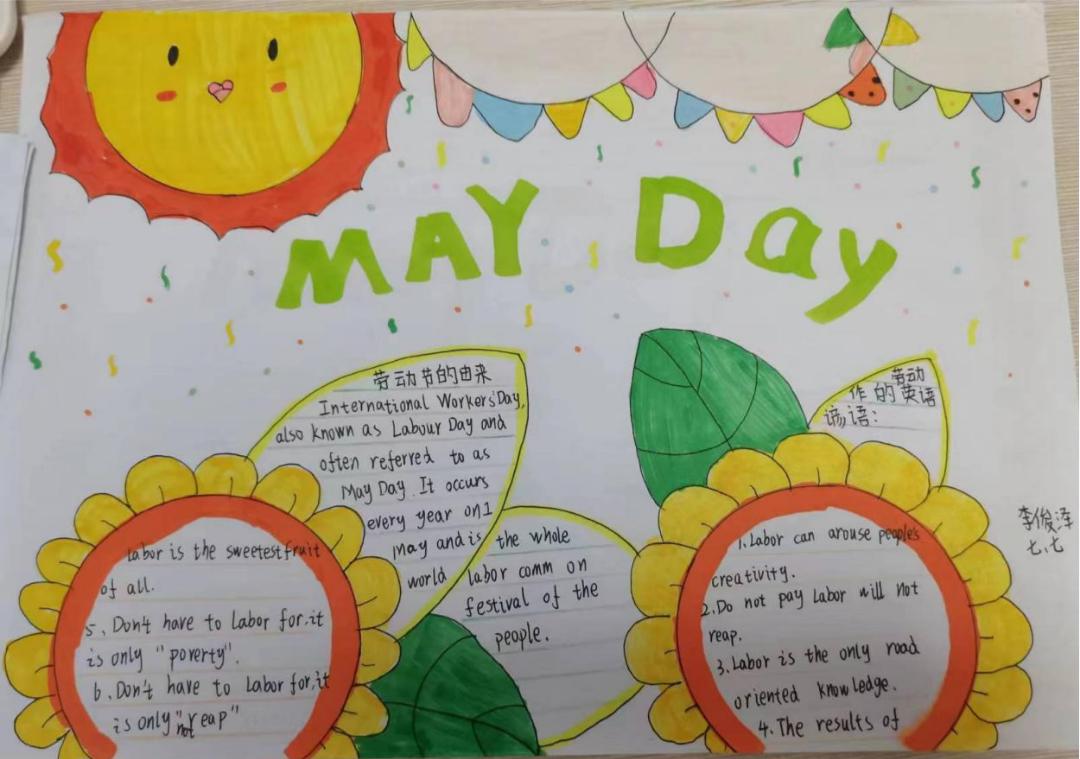 MAY Day
劳动节的由来
International Workers' Day,
also known as Labour Day and
often referred to as
May Day. It occurs
every year on 1
May and is the whole
world labor comm on
festival of the
people.
劳动
作的英语
谚语:
1.Labor can arouse people's
creativity.
2.Do not pay Labor will not
reap.
3.Labor is the only road
oriented knowledge.
4.The results of
Labor is the sweetest fruit
of all.
5、Don't have to Labor for.it
is only "poverty".
6、Don't have to Labor for,it
is only "not reap"
李俊泽
七、七